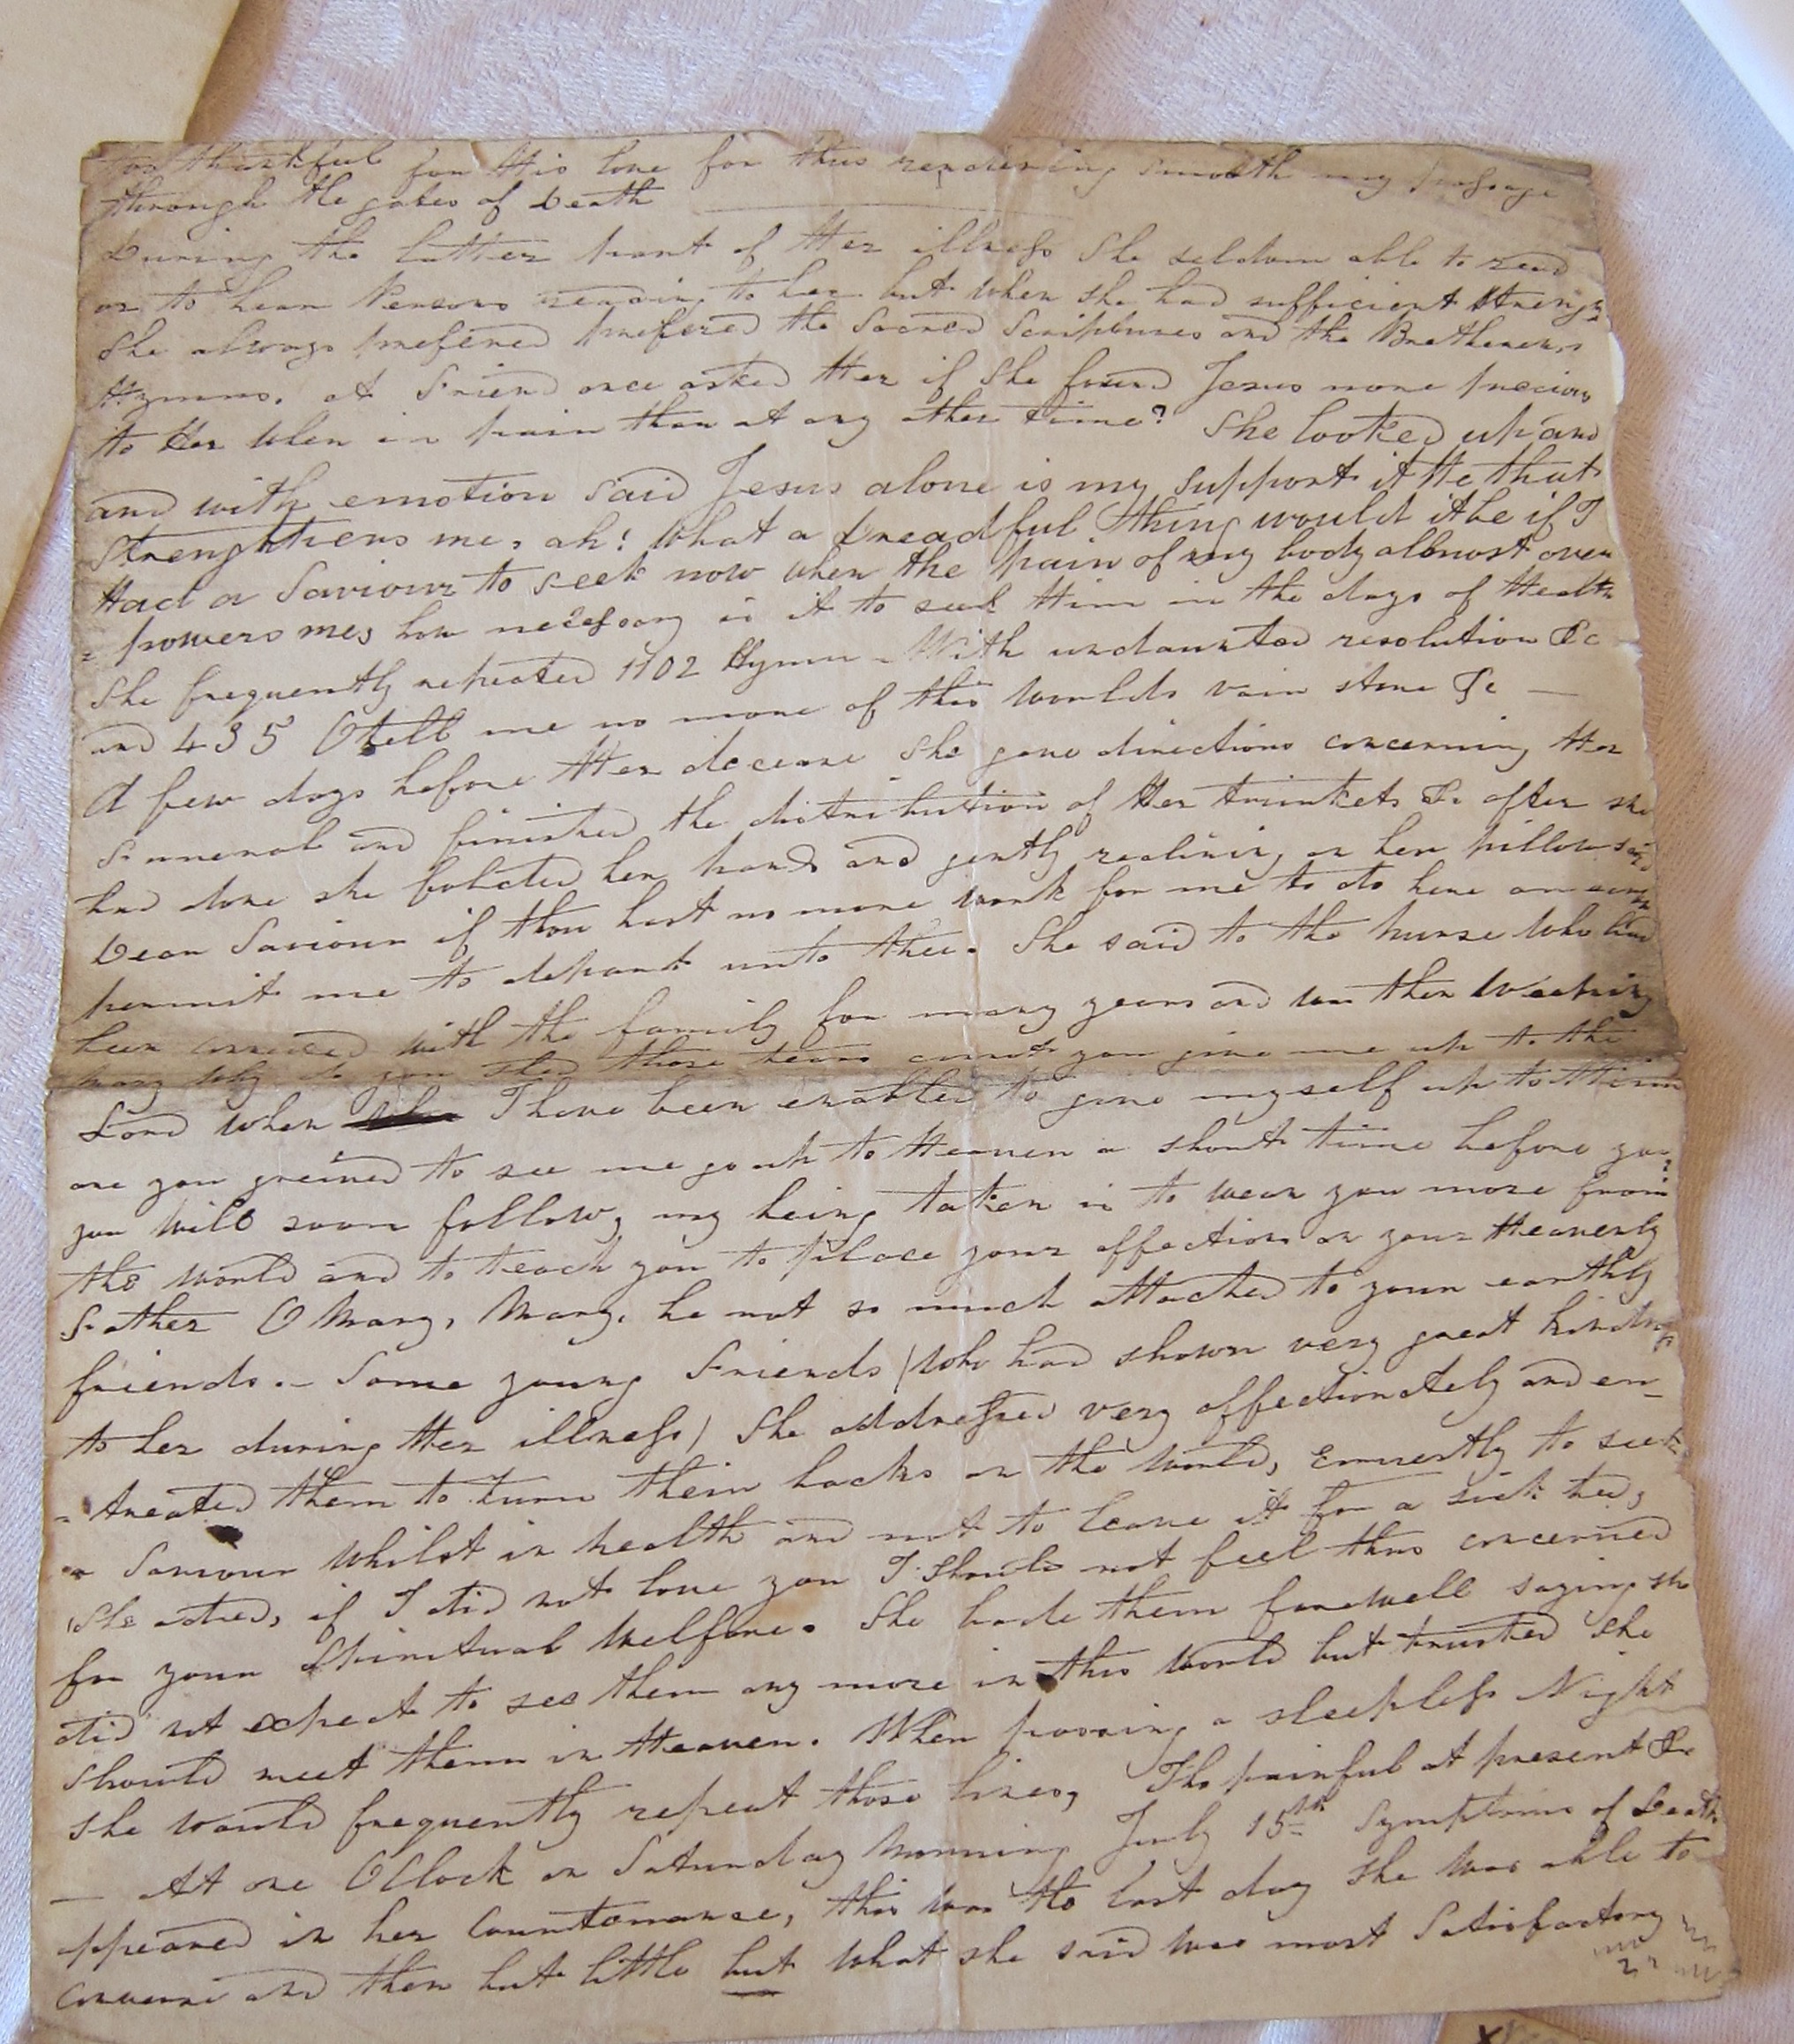 too thankful for His love for thus rendering smooth my passage
through the gates of Death
During the latter part of Her illness She seldom able to read
or to hear Persons reading to her but when she had sufficient streng
She always prefered prefered the Sacred Scriptures and the Bretheren's
Hymns. A Friend once asked Her if She found Jesus more precious
to Her when in pain than at any other time? She looked up and
and with emotion said Jesus alone is my support it He that
strenghtiens me, ah! what a Dreadful thing would it be if I
Had a Saviour to seek now when the pain of my body almost over
= powers me, how necessary is it to seek Him in the days of Health
She frequently repeated 1102 Hymn - With undaunted resolution &c
and 435 O tell me no more of this worlds vain store &c —
A few days before Her decease She gave directions concerning Her
Funeral and finished the distribution of Her trinkets &c after she
had done she folded her hands and gently reclining on her pillow said
Dear Saviour if thou hast no more work for me to do here on earth
permit me to depart unto thee. She said to the Nurse who had
been with the family for many years and was then Weeping
Mary Why do you shed those tears cannot you give me up to the
Lord when I have been enabled to give myself up to Him
are you greived to see me go up to Heaven a short time before you?
you will soon follow, my being taken is to wean you more from
the world and to teach you to place your affections on your Heavenly
Father O Mary, Mary, be not so much attached to your earthly
friends. - Some young Friends (Who had shown very great kindness
to her during Her illness) She addressed very affectionately and en-
= treated them to turn their backs on the World, Ernestly to seek
a Saviour whilst in health and not to leave it for a sick bed,
She added, if I did not love you I should not feel thus concerned
for your Spiritual Welfare. She bade them farewell saying she
did not expect to see them any more in this World but trusted she
should meet them in Heaven. When passing a sleepless Night
she would frequently repeat those lines, Tho painful at present &c
— At one OClock on Saturday Morning July 15th Symptoms of Death
ppeared in her Countenance, this was the last day she was able to
Converse and then but little but what she said was most Satisfactory